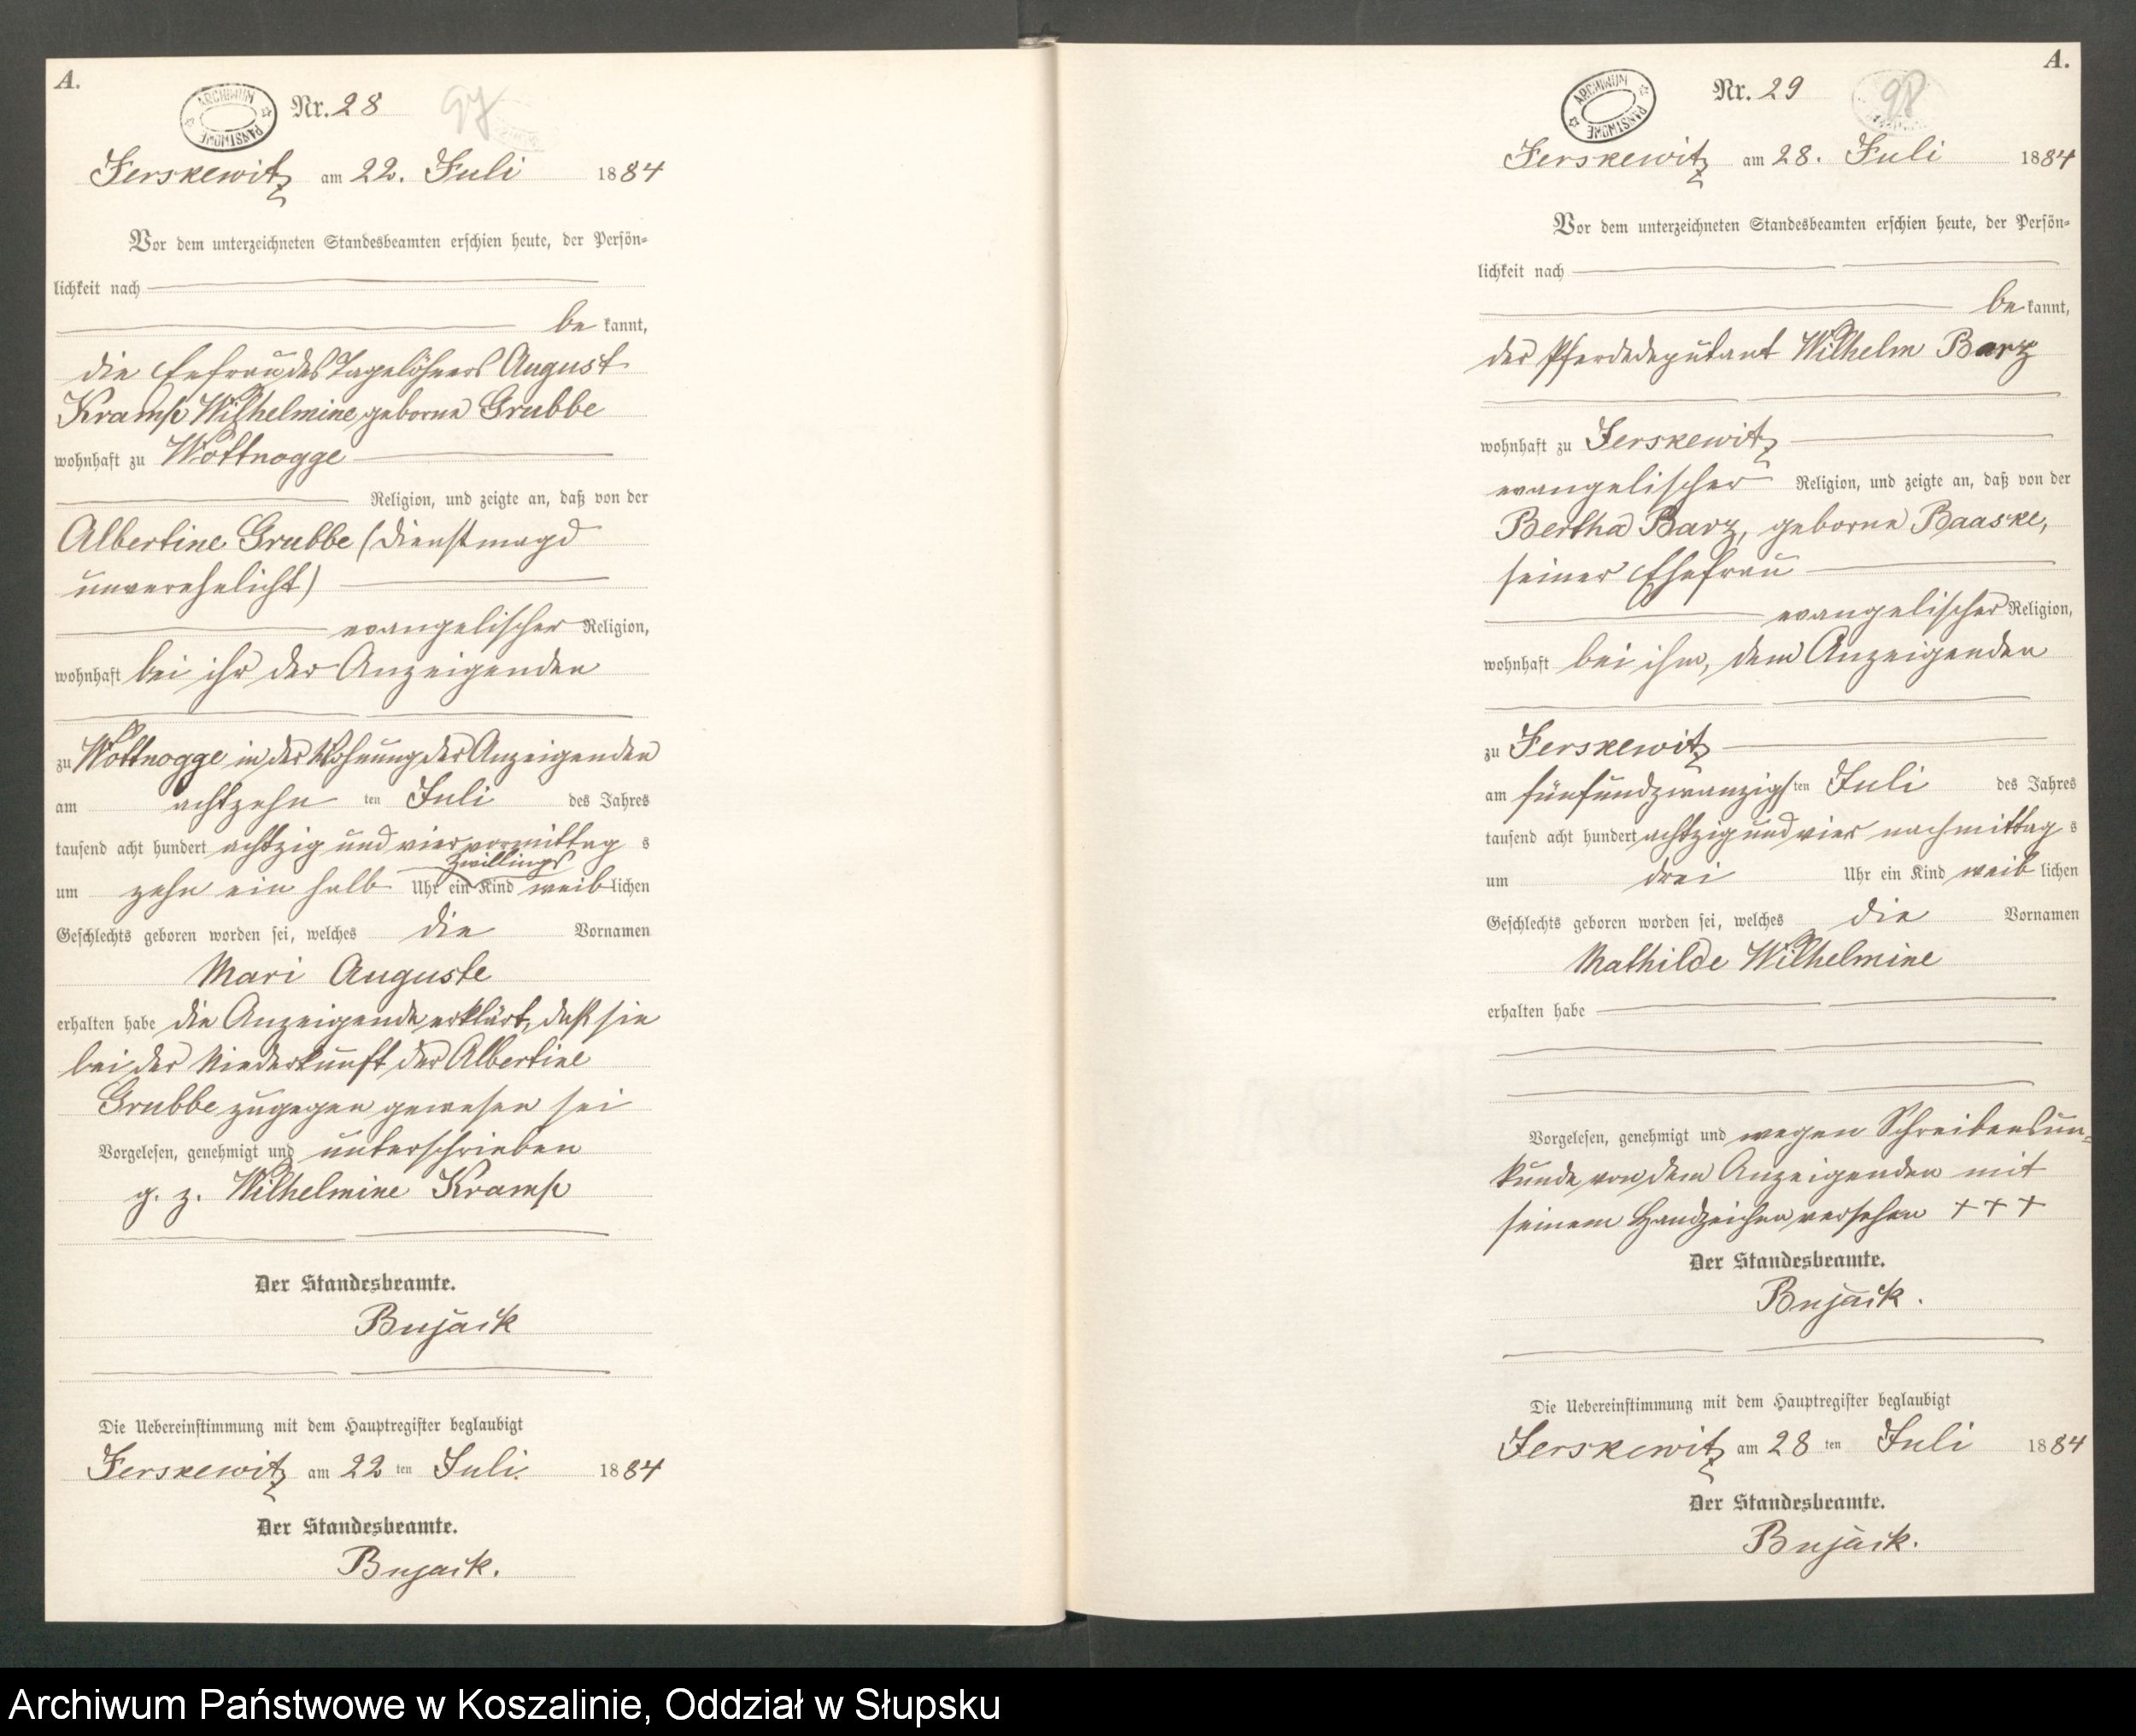 A.
ARCHIWUM PAŃSTWOWE
Nr. 28
97
Jerskewitz am 22. Juli 1884
Vor dem unterzeichneten Standesbeamten erschien heute, der Persön-
lichkeit nach
be kannt,
die Ehefrau des Tagelöhners August
Kramp Wilhelmine geborne Grubbe
wohnhaft zu Wottnogge
Religion, und zeigte an, daß von der
Albertine Grubbe (Dienstmagd
unverehelicht)
evangelischer Religion,
wohnhaft bei ihr der Anzeigenden
zu Wottnogge in der Wohnung der Anzeigenden
am achtzehn ten Juli des Jahres
tausend acht hundert achtzig und vier vormittag s
Zwillings
um zehn ein halb Uhr ein Kind weib lichen
Geschlechts geboren worden sei, welches die Vornamen
Mari Auguste
erhalten habe die Anzeigende erklärt, daß sie
bei der Niederkunft der Albertine
Grubbe zugegen gewesen sei
Vorgelesen, genehmigt und unterschrieben
g. z. Wilhelmine Kramp
Der Standesbeamte.
Bujack
Die Uebereinstimmung mit dem Hauptregister beglaubigt
Jerskewitz am 22 ten Juli. 1884
Der Standesbeamte.
Bujack.
A.
ARCHIWUM PAŃSTWOWE
Nr. 29
98
Jerskewitz am 28. Juli 1884
Vor dem unterzeichneten Standesbeamten erschien heute, der Persön-
lichkeit nach
be kannt,
der Pferdedeputant Wilhelm Barz
wohnhaft zu Jerskewitz
evangelischer Religion, und zeigte an, daß von der
Bertha Barz, geborne Baaske,
seiner Ehefrau
evangelischer Religion,
wohnhaft bei ihm, dem Anzeigenden
zu Jerskewitz
am fünfundzwanzigs ten Juli des Jahres
tausend acht hundert achtzig und vier nachmittag s
um drei Uhr ein Kind weib lichen
Geschlechts geboren worden sei, welches die Vornamen
Mathilde Wilhelmine
erhalten habe
Vorgelesen, genehmigt und wegen Schreibensun-
kunde von dem Anzeigenden mit
seinem Handzeichen versehen + + +
Der Standesbeamte.
Bujack.
Die Uebereinstimmung mit dem Hauptregister beglaubigt
Jerskewitz am 28 ten Juli 1884
Der Standesbeamte.
Bujack.
Archiwum Państwowe w Koszalinie, Oddział w Słupsku